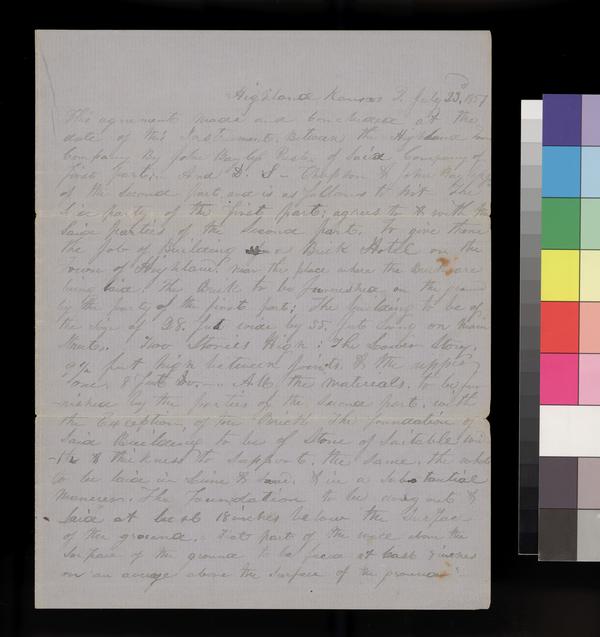 Highland Kansas T. July 23rd 1857
This agreement made and concluded at the
date of this Instrument. Between the Highland Town
Company By John Bayless Prest. of Said Company of
first part. And D. S - & John Bayless
of the second part and is as follows to wit The
Said party of the first part; agrees to & with the
Said parties of the Second part. to give them
the job of Building a Brick Hotel on the
Town of Highland. Near the place where the Brick are
being laid the Brick to be furnished on the ground
by the party of the first part; The building to be of
the size of 28. feet wide by 55. feet long on Main
Street. Two Stories High: The Lower Story.
9½ feet high between joints & the upper
one 8 feet Do. — All the materials. to be fur
-nished by the parties of the second part. with
the Exception of the Brick The foundation of
Said Building to be of Stone of Suitable wi-
-th & thickness to Support. the same. the whole
to be laid in Lime & Sand. & in a Substantial
Manner. The Foundation to be dug out &
laid at least 18 inches below the Surface
of the ground. That part of the above the
Surface of the ground to be faced at least 8 inches
on an average above the Surface of the ground